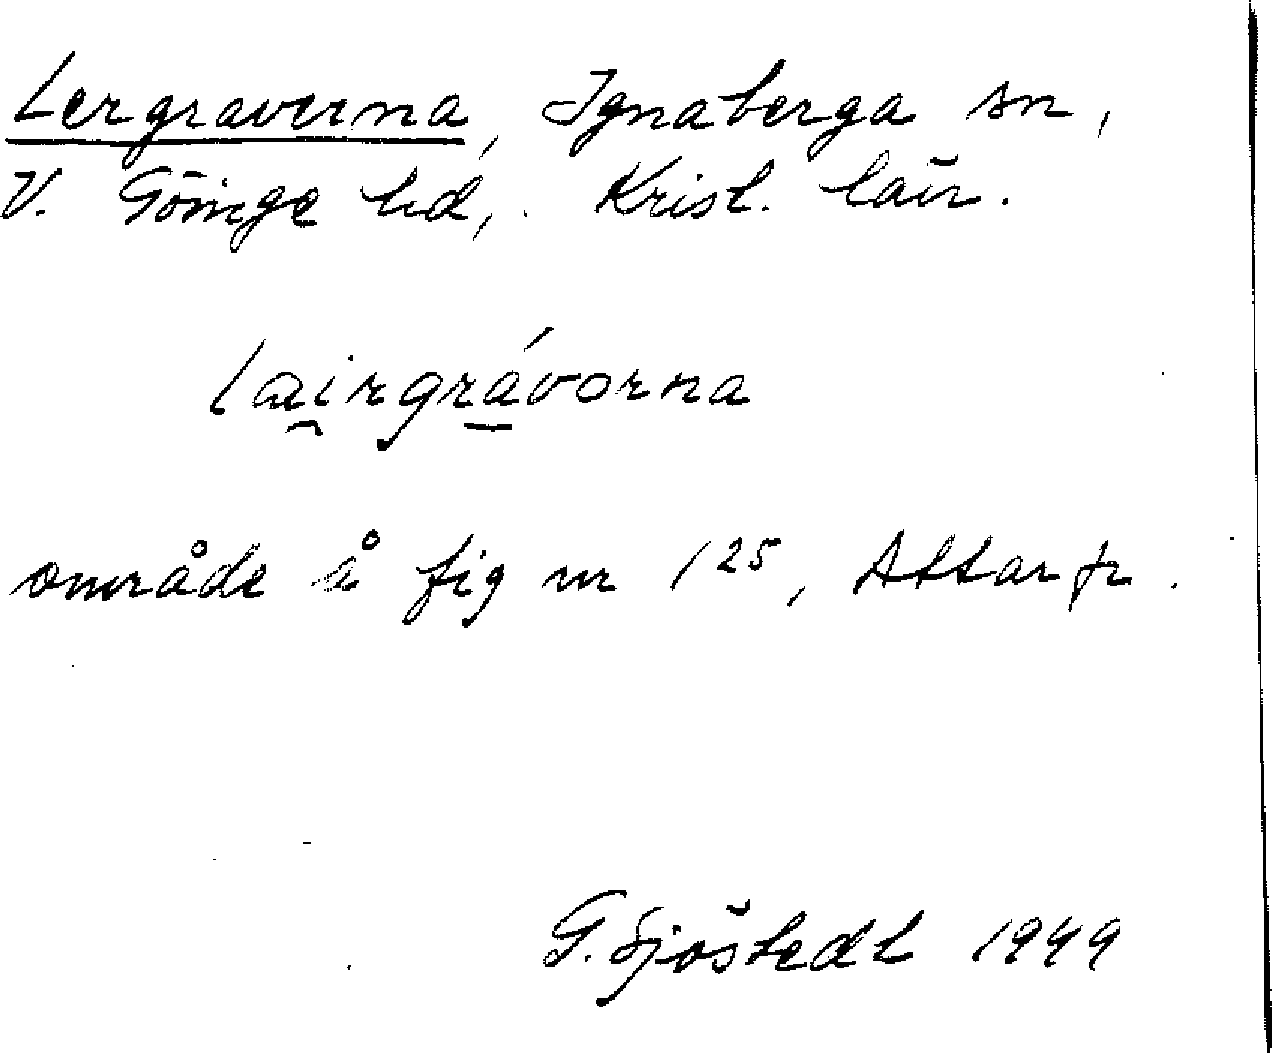 Lergraverna, Ignaberga sn,
V. Göinge hd, Krist. län.
lairgrávorna
område å fig nr 125, Attarp.
G. Sjöstedt 1949